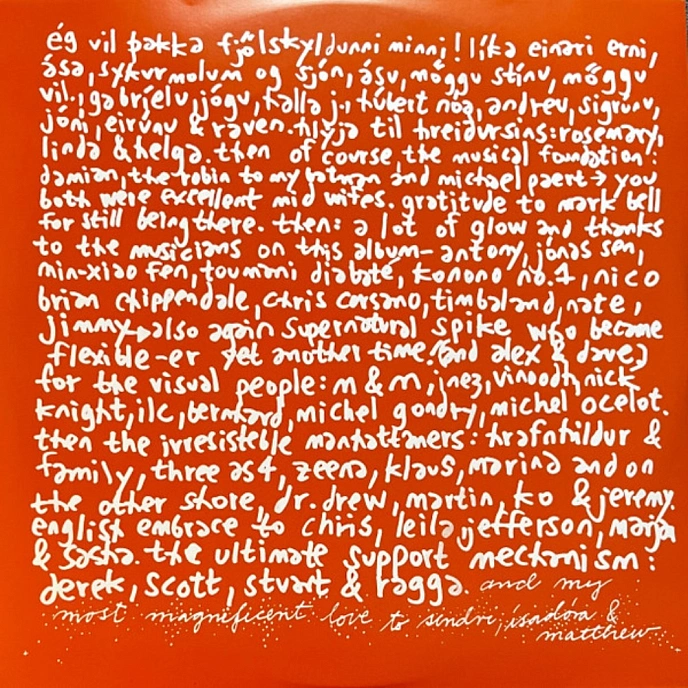 ég vil þakka fjölskyldunni minni! líka einari erni,
ása, sykurmolum og sjón, ásu, möggu stínu, möggu
vil., gabríelu, jógu, halla j., húbert nóa, andreu, sigrúnu,
jóni, eirúnu & raven. hlýja til hreidursins: rosemary,
linda & helga. then of course the musical foundation:
damian, the robin to my batman and michael paert → you
both were excellent mid wifes. gratitude to mark bell
for still being there. then: a lot of glow and thanks
to the musicians on this album - antony, jónas sen,
min-xiao fen, toumani diabaté, konono no.1, nico
brian chippendale, chris corsano, timbaland, nate,
jimmy → also again supernatural spike who became
flexible-er yet another time! (and alex & dave)
for the visual people: m & m, inez, vinoodh, nick
knight, ilc, bernhard, michel gondry, michel ocelot.
then the irresistible manhattaners: hrafnhildur &
family, three as 4, zeena, klaus, marina and on
the other shore, dr. drew, martin, ko & jeremy.
english embrace to chris, leila, jefferson, maija
& sasha. the ultimate support mechanism:
derek, scott, stuart & ragga. and my
most magnificent love to sindri, ísadóra &
matthew